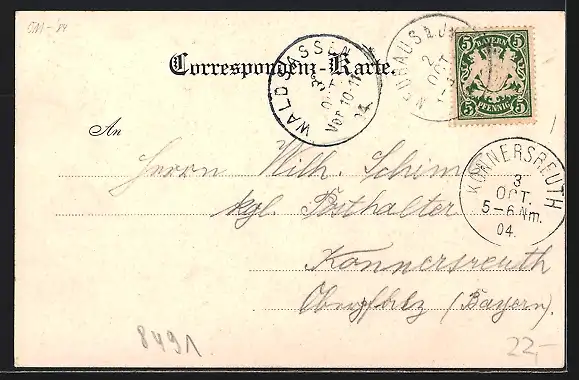 OM-'84
Correspondenz-Karte.
WALDSASSEN
3
OCT.
Vor. 10-11
04.
2
OCT
BAYERN
5 5
5 PFENNIG 5
An
Herrn Wilh. Schim
kgl. Posthalter
KONNERSREUTH
3
OCT.
5-6 Nm.
04.
Konnersreuth
Oberpfalz (Bayern).
8491
22,-